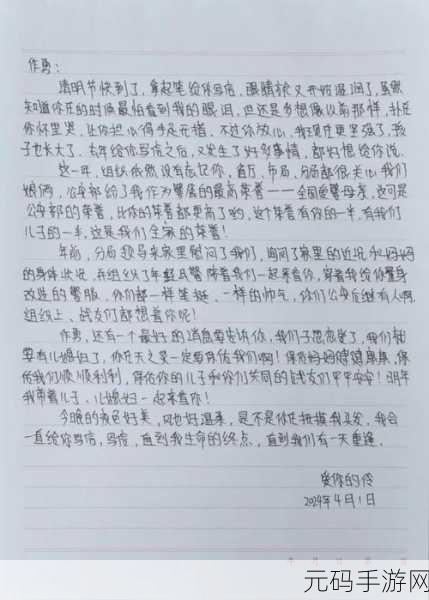 作勇：
清明节快到了，拿起笔给你写信，眼睛就又开始湿润了，虽然
知道你在的时候最怕看到我的眼泪，但还是多想像以前那样，扑在
你怀里哭，让你担心得手足无措。不过你放心，我现在更坚强了，孩
子也长大了。去年给你写信之后，又发生了好多事情，都好想给你说。
这一年，组织依然没有忘记你，首厅、市局、分局都很关心我们
娘俩，公安部给了我作为警属的最高荣誉——全国爱警母亲，这可是
公安部的荣誉，比你的荣誉都要高了哟，这个荣誉有你的一半，有我们
儿子的一半，这是我们全家的荣誉！
年前，分局领导来家里慰问了我们，询问了家里的近况和妈妈
的身体状况，还组织了年轻民警陪着我们一起来看你，穿着我给你量身
改造的警服，你们都一样笔挺、一样的帅气，你们公安后继有人啊，
组织上、战友们都想着你呢！
作勇，还有一个最好的消息要告诉你，我们儿子恋爱了，我们就
要有儿媳妇了，你在天之灵一定要保佑我们啊！保佑妈妈健健康康，保
佑我们顺顺利利，保佑你的儿子和你们共同的战友们平平安安！明年
我带着儿子、儿媳妇一起来看你！
今晚的夜色好美，风也好温柔，是不是你在抚摸我头发，我会
一直给你写信，写信，直到我生命的终点，直到我们有一天重逢。
爱你的伶
2024年4月1日
元码手游网